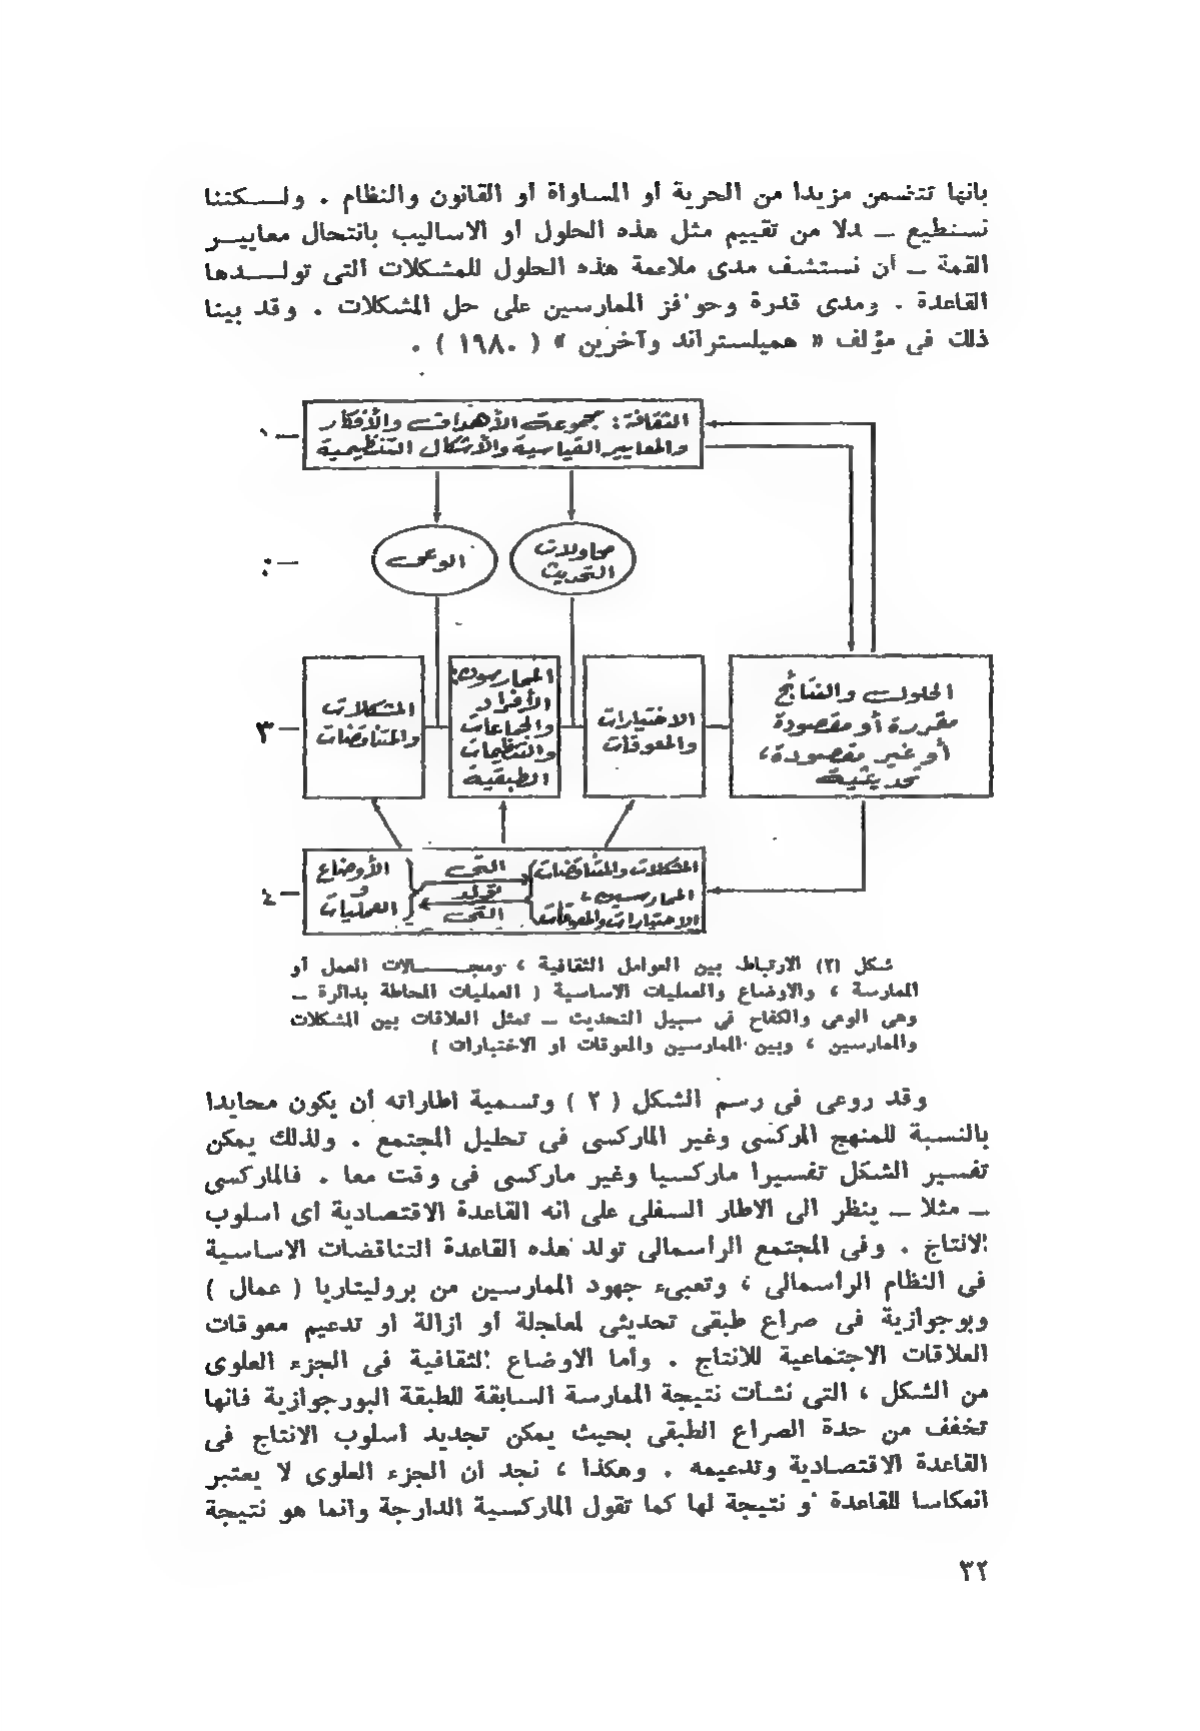 بانها تتضمن مزيدا من الحرية أو المساواة أو القانون والنظام . ولـــكننا
نستطيع ــ بدلا من تقييم مثل هذه الحلول أو الاساليب بانتحال معاييــر
القمة ــ أن نستشف مدى ملاءمة هذه الحلول للمشكلات التى تولــــدها
القاعدة . ومدى قدرة وحوافز الممارسين على حل المشكلات . وقد بينا
ذلك فى مؤلف « هميلستراند وآخرين » ( ١٩٨٠ ) .
الثقافة : مجموعة الأهداف والأفكار
والمعايير القياسية والأشكال التنظيمية
١ –
محاولات
التحديث
الوعى
٢ –
الحلول والنتائج
مقررة أو مقصودة
أو غير مقصودة،
تحديثية
الاختيارات
والمعوقات
الممارسون:
الأفراد
والجماعات
والتنظيمات
الطبقية
المشكلات
والمتناقضات
٣ –
المشكلات والمتناقضات
الممارسين ،
الاختيارات والمعوقات
التى
تولد
التى
الأوضاع
و
العمليات
٤ –
شكل (٢) الارتباط بين العوامل الثقافية ، ومجـــــالات العمل أو
الممارسة ، والاوضاع والعمليات الاساسية ( العمليات المحاطة بدائرة ــ
وهى الوعى والكفاح فى سبيل التحديث ــ تمثل العلاقات بين المشكلات
والممارسين ، وبين الممارسين والمعوقات او الاختيارات )
وقد روعى فى رسم الشكل ( ٢ ) وتسمية اطاراته أن يكون محايدا
بالنسبة للمنهج المركسى وغير الماركسى فى تحليل المجتمع . ولذلك يمكن
تفسير الشكل تفسيرا ماركسيا وغير ماركسى فى وقت معا . فالماركسى
ــ مثلا ــ ينظر الى الاطار السفلى على انه القاعدة الاقتصادية اى اسلوب
الانتاج . وفى المجتمع الرأسمالى تولد هذه القاعدة التناقضات الاساسية
فى النظام الرأسمالى ، وتعبىء جهود الممارسين من بروليتاريا ( عمال )
وبوجوازية فى صراع طبقى تحديثى لمعاجلة أو ازالة او تدعيم معوقات
العلاقات الاجتماعية للانتاج . وأما الاوضاع الثقافية فى الجزء العلوى
من الشكل ، التى نشأت نتيجة الممارسة السابقة للطبقة البورجوازية فانها
تخفف من حدة الصراع الطبقى بحيث يمكن تجديد أسلوب الانتاج فى
القاعدة الاقتصادية وتدعيمه . وهكذا ، نجد أن الجزء العلوى لا يعتبر
انعكاسا للقاعدة أو نتيجة لها كما تقول الماركسية الدارجة وانما هو نتيجة
٣٢